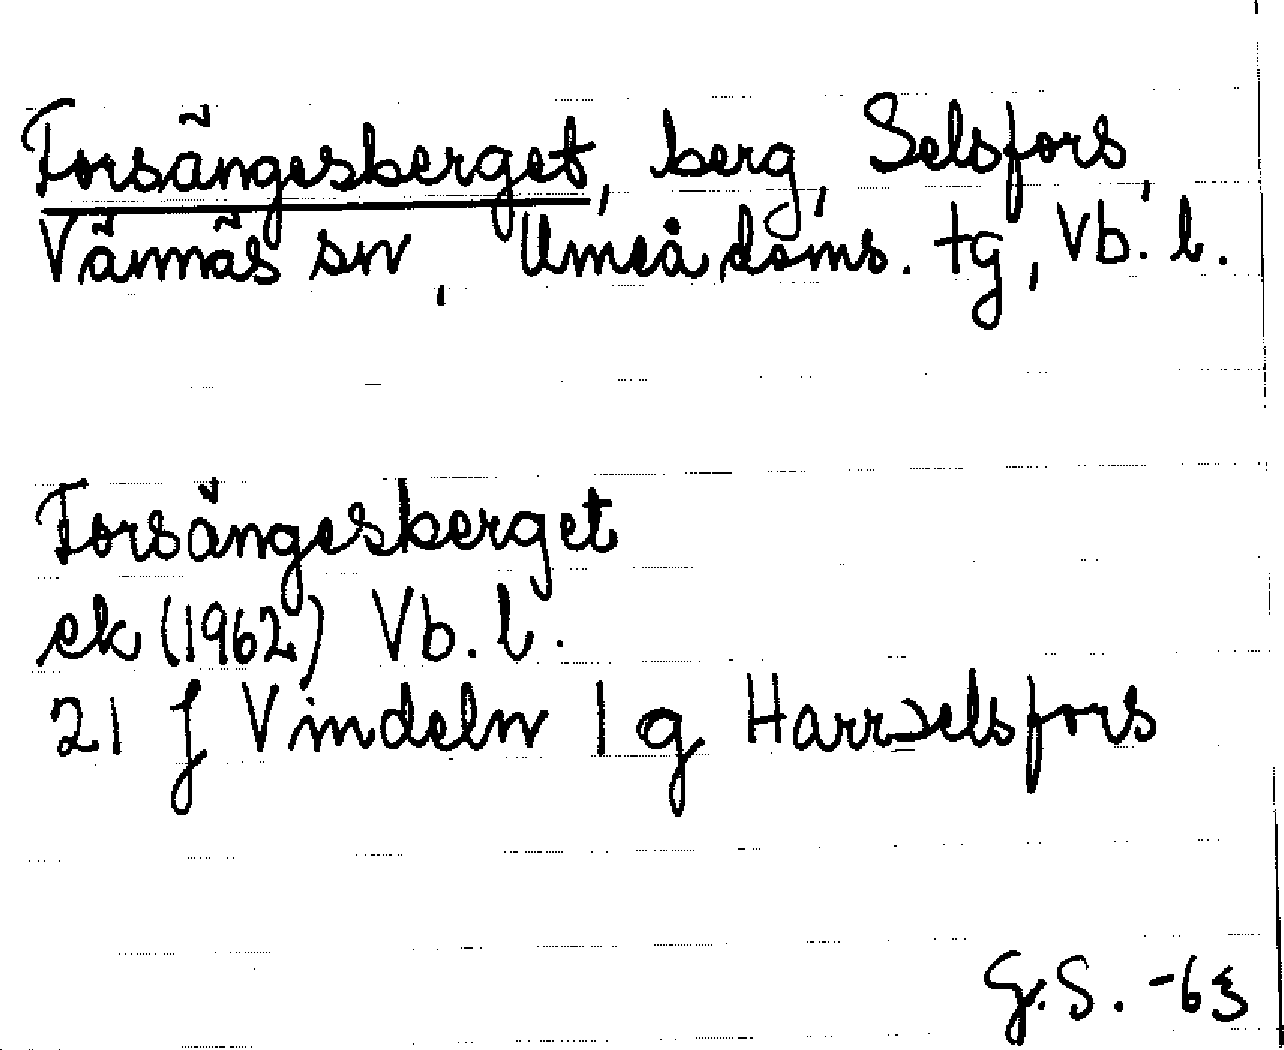 Forsängesberget, berg, Selsfors,
Vännäs sn, Umeå doms. tg, Vb. l.
Forsängesberget
ek (1962) Vb. l.
21 f Vindeln 1 g Harrselsfors
G.S. -63